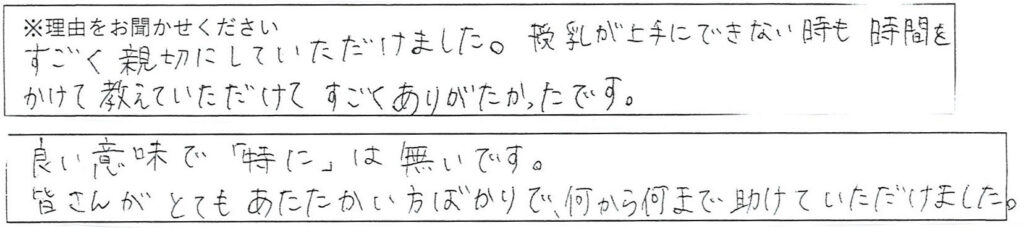 ※理由をお聞かせください
すごく親切にしていただけました。授乳が上手にできない時も時間を
かけて教えていただけてすごくありがたかったです。
良い意味で「特に」は無いです。
皆さんがとてもあたたかい方ばかりで、何から何まで助けていただけました。